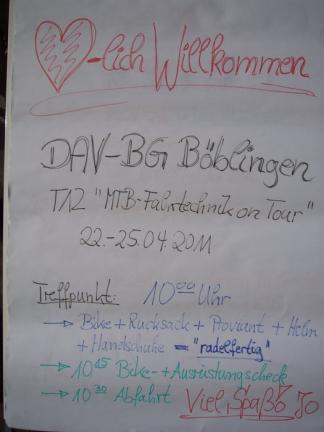 -lich Willkommen
DAV-BG Böblingen
T12 "MTB-Fahrtechnik on Tour"
22.-25.04.2011
Treffpunkt: 10⁰⁰ Uhr
→ Bike + Rucksack + Proviant + Helm
+ Handschuhe = "radelfertig"
→ 10¹⁵ Bike- + Ausrüstungscheck
→ 10³⁰ Abfahrt Viel Spaß Jo